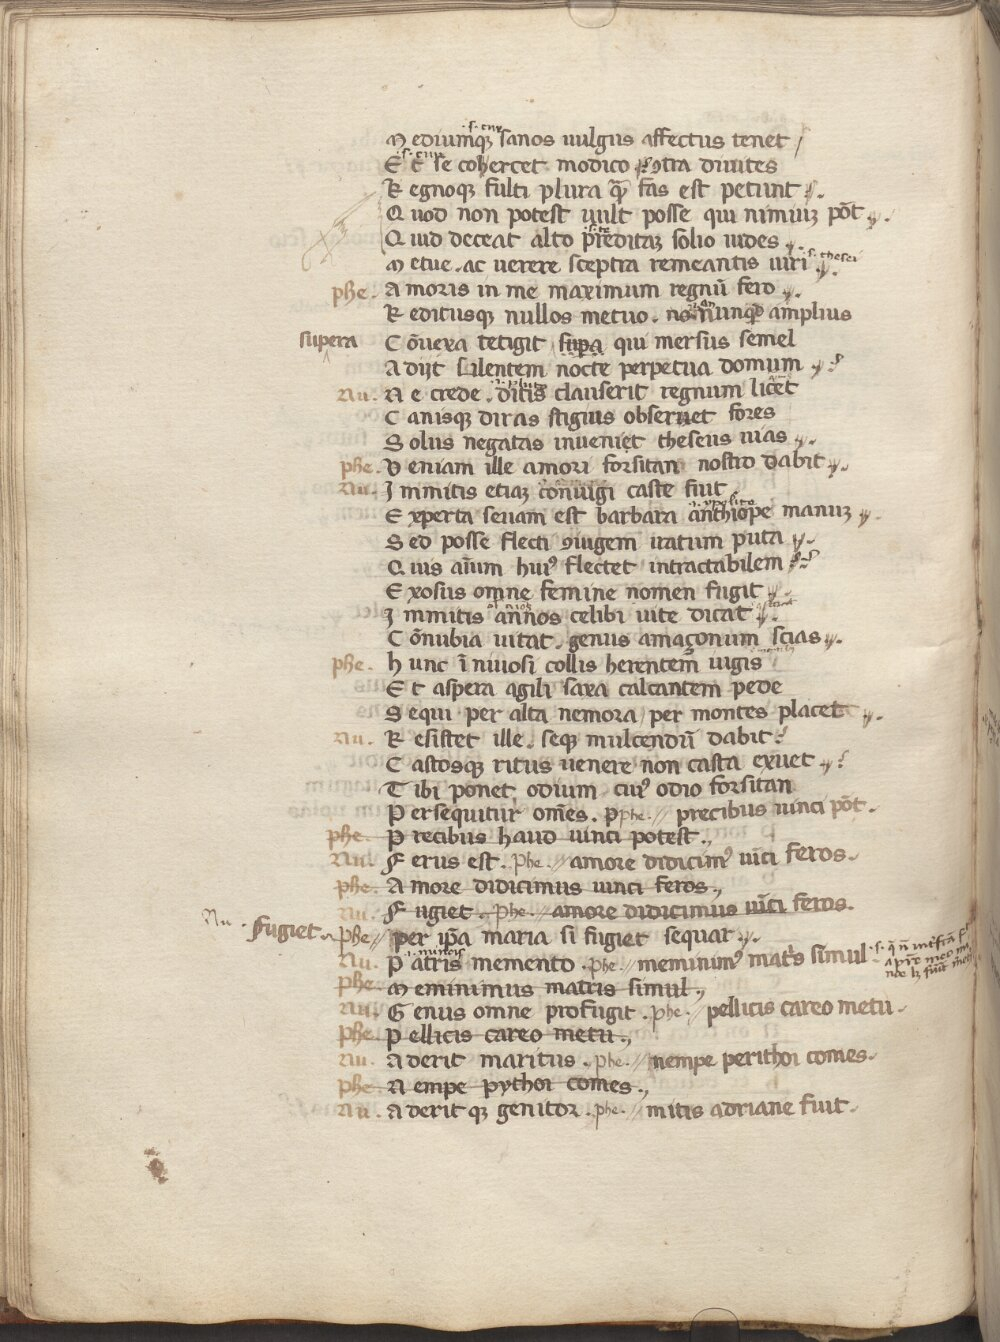 Mediumq; sanos uulgus affectus tenet
Et se cohercet modico ↄtra diuites
Regnoq; fulti plura q̃ fas est petunt
Quod non potest uult posse qui nimiuz põt
Quid deceat alto preditaz solio uides
Metue. ac uerere sceptra remeantis uiri s. thesei
phe. Amoris in me maximum regnũ fero
Reditusq; nullos metuo. nõnunq̃ amplius
supera Cõuexa tetigit supa qui mersus semel
Adijt silentem nocte perpetua domum
Nu. Ne crede. ditis clauserit regnum licet
Canisq; diras stigius obseruet fores
Solus negatas inueniet theseus uias
phe. Veniam ille amori forsitan nostro dabit
Nu. Immitis etiaz coniugi caste fuit
Experta seuam est barbara anthiope manuz
Sed posse flecti ↄiugem iratum puta
Quis aĩum hui⁹ flectet intractabilem
Exosus omne femine nomen fugit
Immitis annos celibi uite dicat
Cõnubia uitat. genus amaçonum scias
phe. hunc ĩ niuosi collis herentem iugis
Et aspera agili saxa calcantem pede
Sequi per alta nemora / per montes placet
Nu. Resistet ille. seq; mulcendũ dabit
Castosq; ritus uenere non casta exuet
Tibi ponet odium cui⁹ odio forsitan
Persequitur om̃es. phe. // precibus uinci põt.
phe. Precibus haud uinci potest.
Nu. Ferus est. phe. // amore didicim⁹ uĩci feros.
phe. Amore didicimus uinci feros.
Nu. Fugiet. phe. // amore didicimus uĩci feros.
Nu. Fugiet. phe // per ip̃a maria si fugiet sequar.
Nu. Patris memento. phe. // meminim⁹ mat's simul
phe. Meminimus matris simul.
Nu. Genus omne profugit. phe. // pellicis careo metu.
phe. Pellicis careo metu.
Nu. Aderit maritus. phe. // nempe perithoi comes.
phe. Nempe pythoi comes.
Nu. Aderit q; genitor. phe. // mitis adriane fuit.